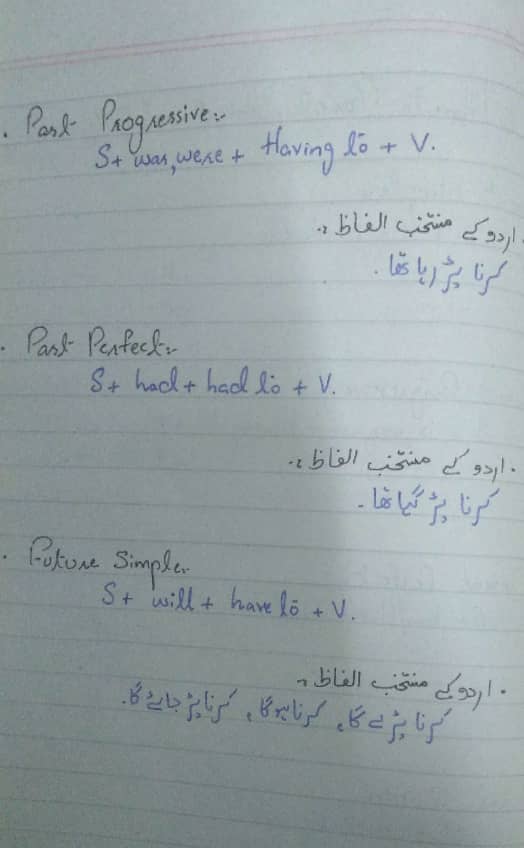 . Past Progressive:-
S+ was, were + Having to + V.
. اردو کے منتخب الفاظ :-
کرنا پڑ رہا تھا .
. Past Perfect:-
S+ had + had to + V.
. اردو کے منتخب الفاظ :-
کرنا پڑ گیا تھا .
. Future Simple:-
S+ will + have to + V.
. اردو کے منتخب الفاظ :-
کرنا پڑے گا، کرنا ہوگا، کرنا پڑ جائے گا.